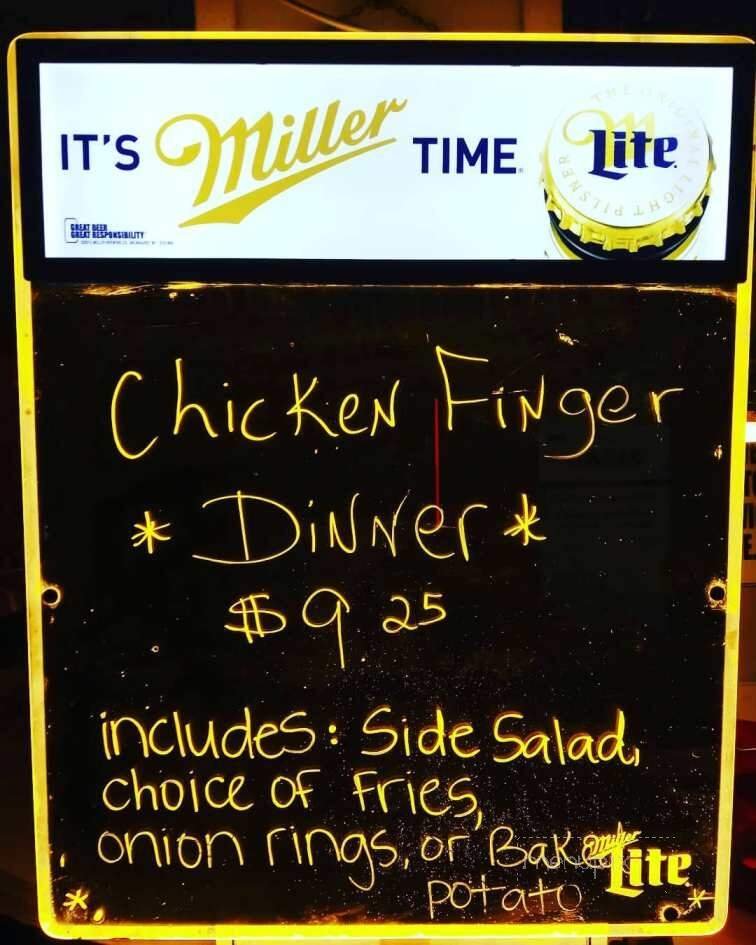 IT'S Miller TIME
THE ORIGINAL LIGHT PILSNER
Lite
GREAT BEER
GREAT RESPONSIBILITY
Chicken Finger
* Dinner *
$9.25
includes: Side Salad,
choice of Fries,
onion rings, or Bake
potato
Miller
Lite